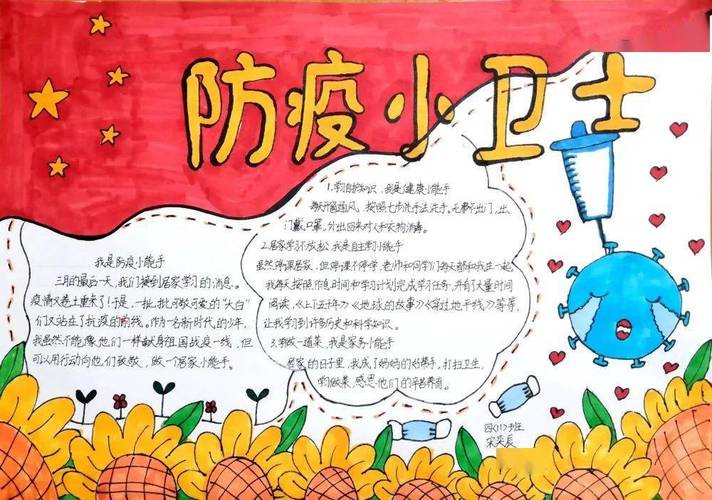 防疫小卫士
我是防疫小能手
三月的最后一天,我们接到居家学习的消息。
疫情又卷土重来了!于是,一批批可敬可爱的“大白”
们又站在了抗疫的前线。作为一名新时代的少年,
我虽然不能像他们一样献身祖国战疫一线,但
可以用行动向他们致敬,做一个居家小能手。
1.学习防护知识,我是健康小能手
每天开窗通风,按照七步洗手法洗手。无事不出门,出
门戴口罩,外出回来对人和衣物消毒。
2.居家学习不放松,我是自主学习小能手
虽然停课居家,但停课不停学,老师和同学们每天都和我在一起
我每天按照作息时间和学习计划完成学习任务,并有了大量时间
阅读,《上下五千年》《地球的故事》《穿过地平线》等等,
让我学到许多历史和科学知识。
3.学做一道菜,我是家务小能手
居家的日子里,我成了妈妈的好帮手,打扫卫生,
学做菜,感恩他们的辛苦养育。
四(1)班
宋奕辰